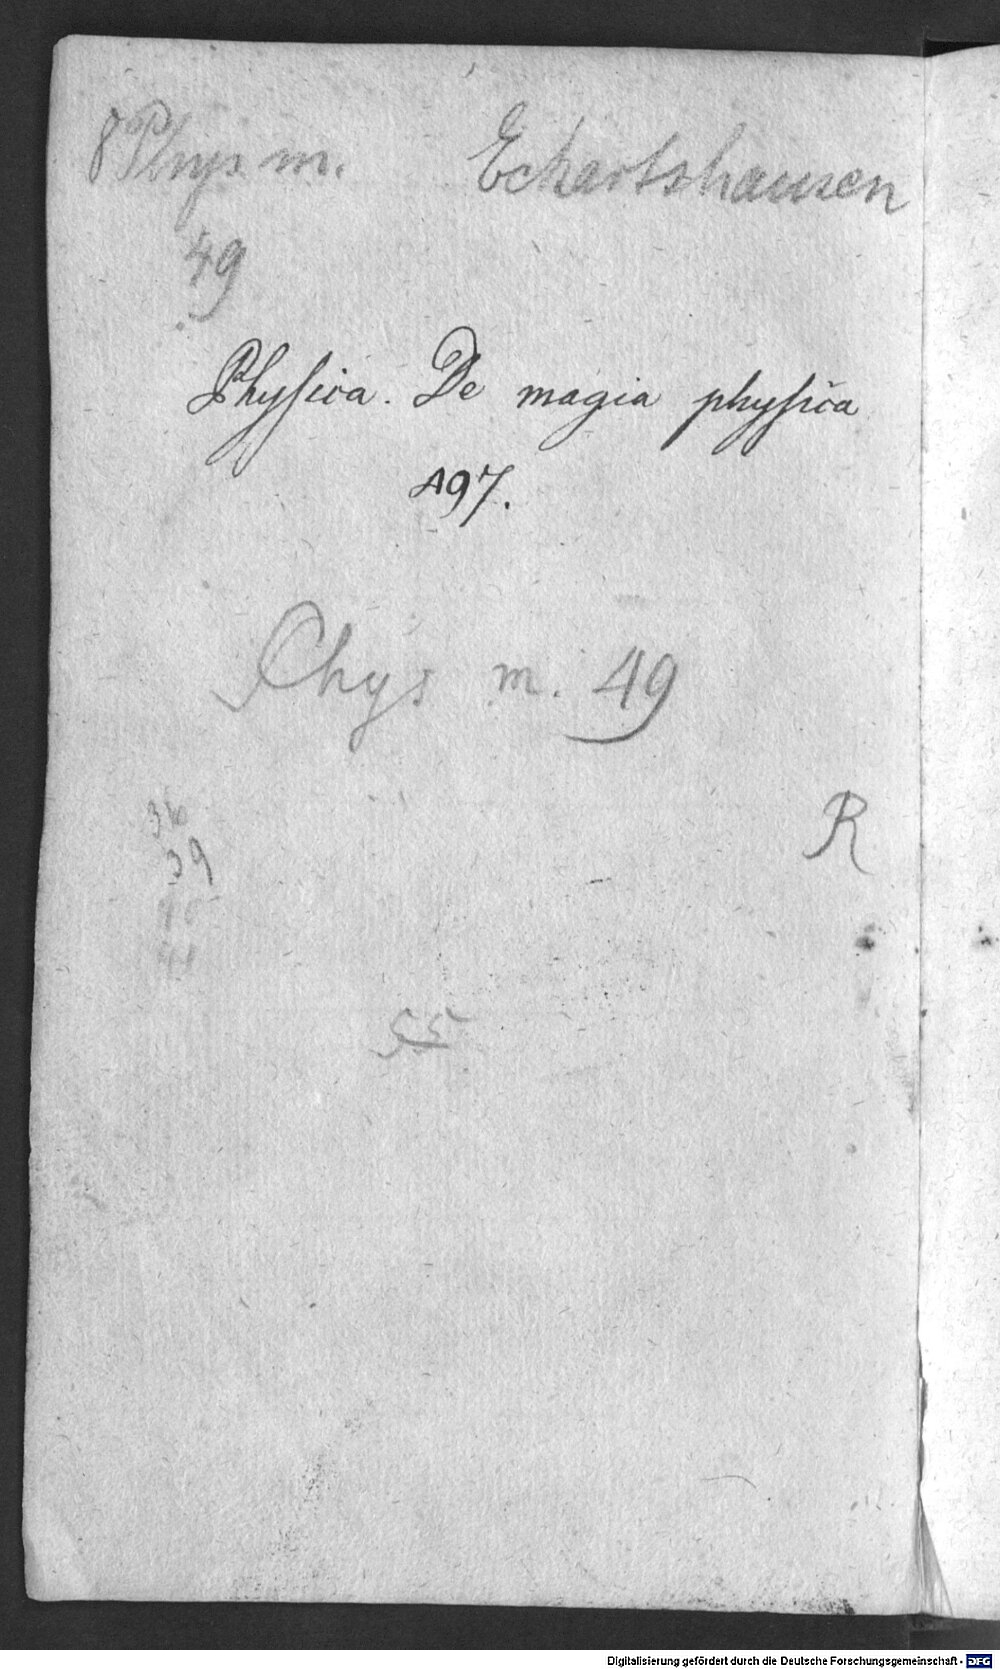 8 Phys. m. Eckartshausen
49
Physica. De magia physica
197.
Phys m. 49
R
39
55
Digitalisierung gefördert durch die Deutsche Forschungsgemeinschaft - DFG